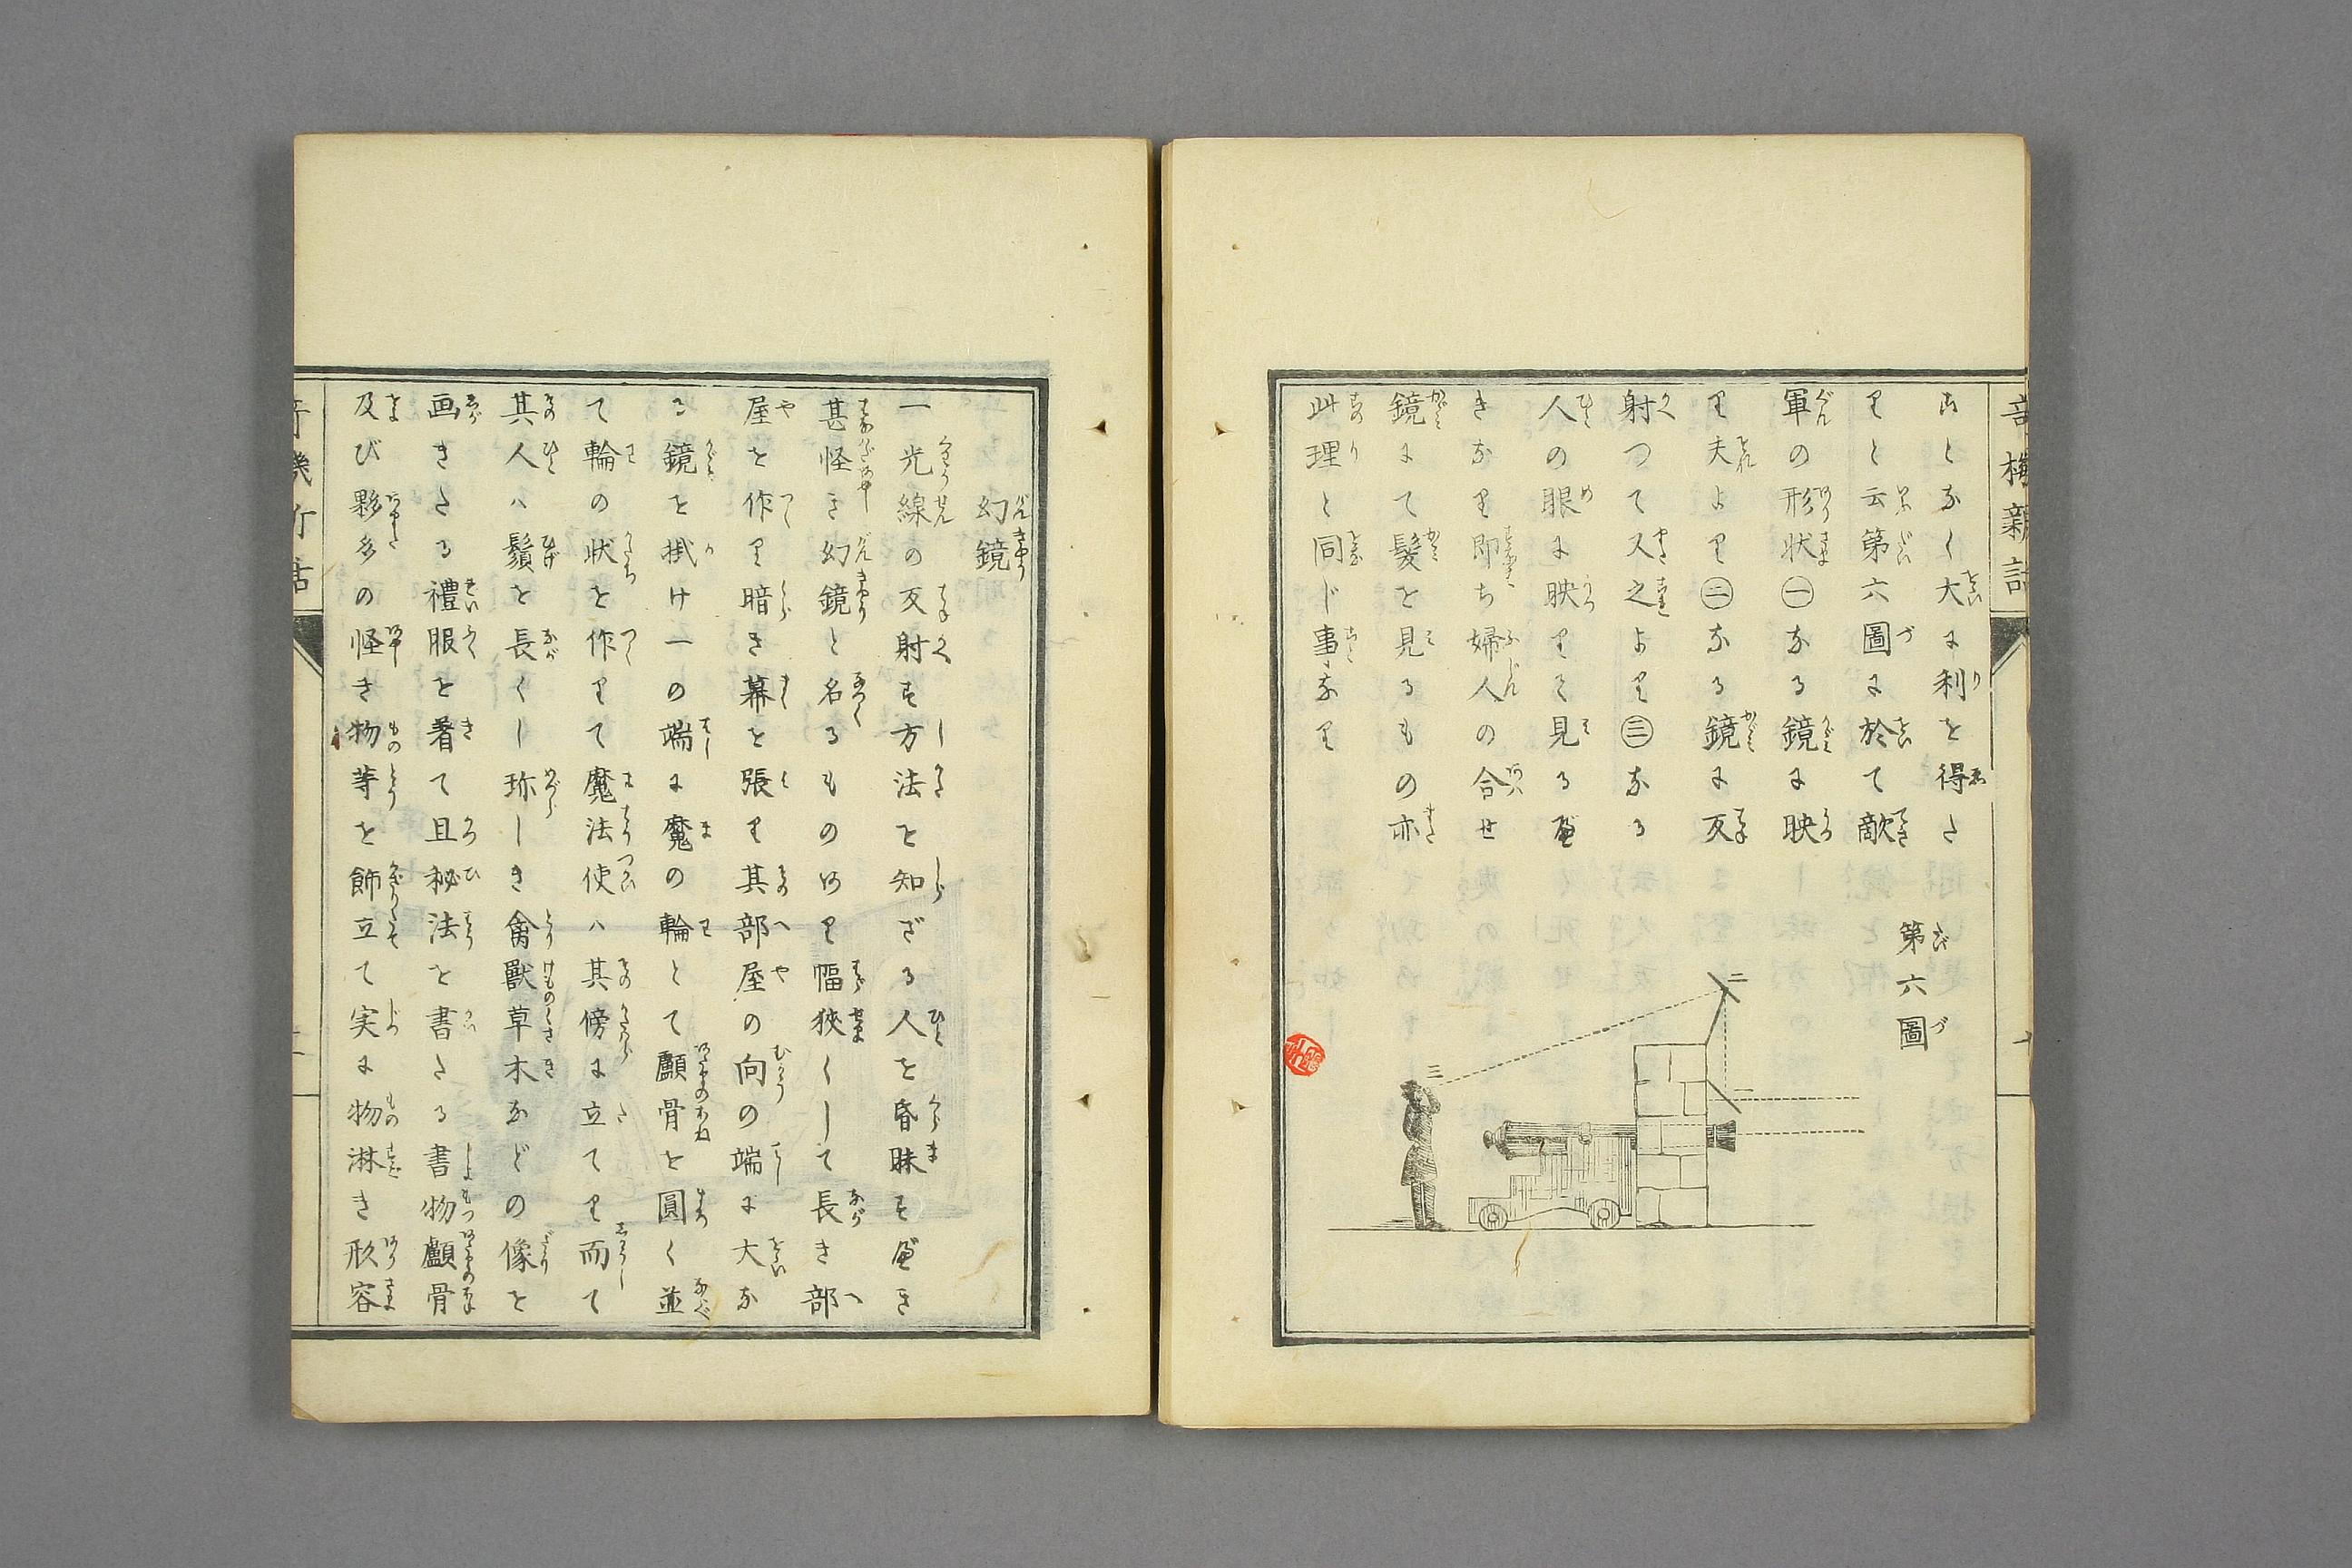 ことなく大に利を得た
りと云第六圖に於て敵
軍の形状㊀なる鏡に映
り夫より㊁なる鏡に反
射つて又之より㊂なる
人の眼に映りて見る可
きなり即ち婦人の合せ
鏡にて髪を見るもの亦
此理と同じ事なり
第六圖
二
一
三
幻鏡
一光線の反射す方法を知ざる人を昏眛す可き
甚怪き幻鏡と名るものあり幅狹くして長き部
屋を作り暗き幕を張り其部屋の向の端に大な
る鏡を掛け一の端に魔の輪とて顱骨を圓く並
て輪の状を作りて魔法使ハ其傍に立てり而て
其人ハ鬚を長くし珎しき禽獸草木などの像を
画きたる禮服を着て且秘法を書たる書物顱骨
及び夥多の怪き物等を飾立て実に物淋き形容